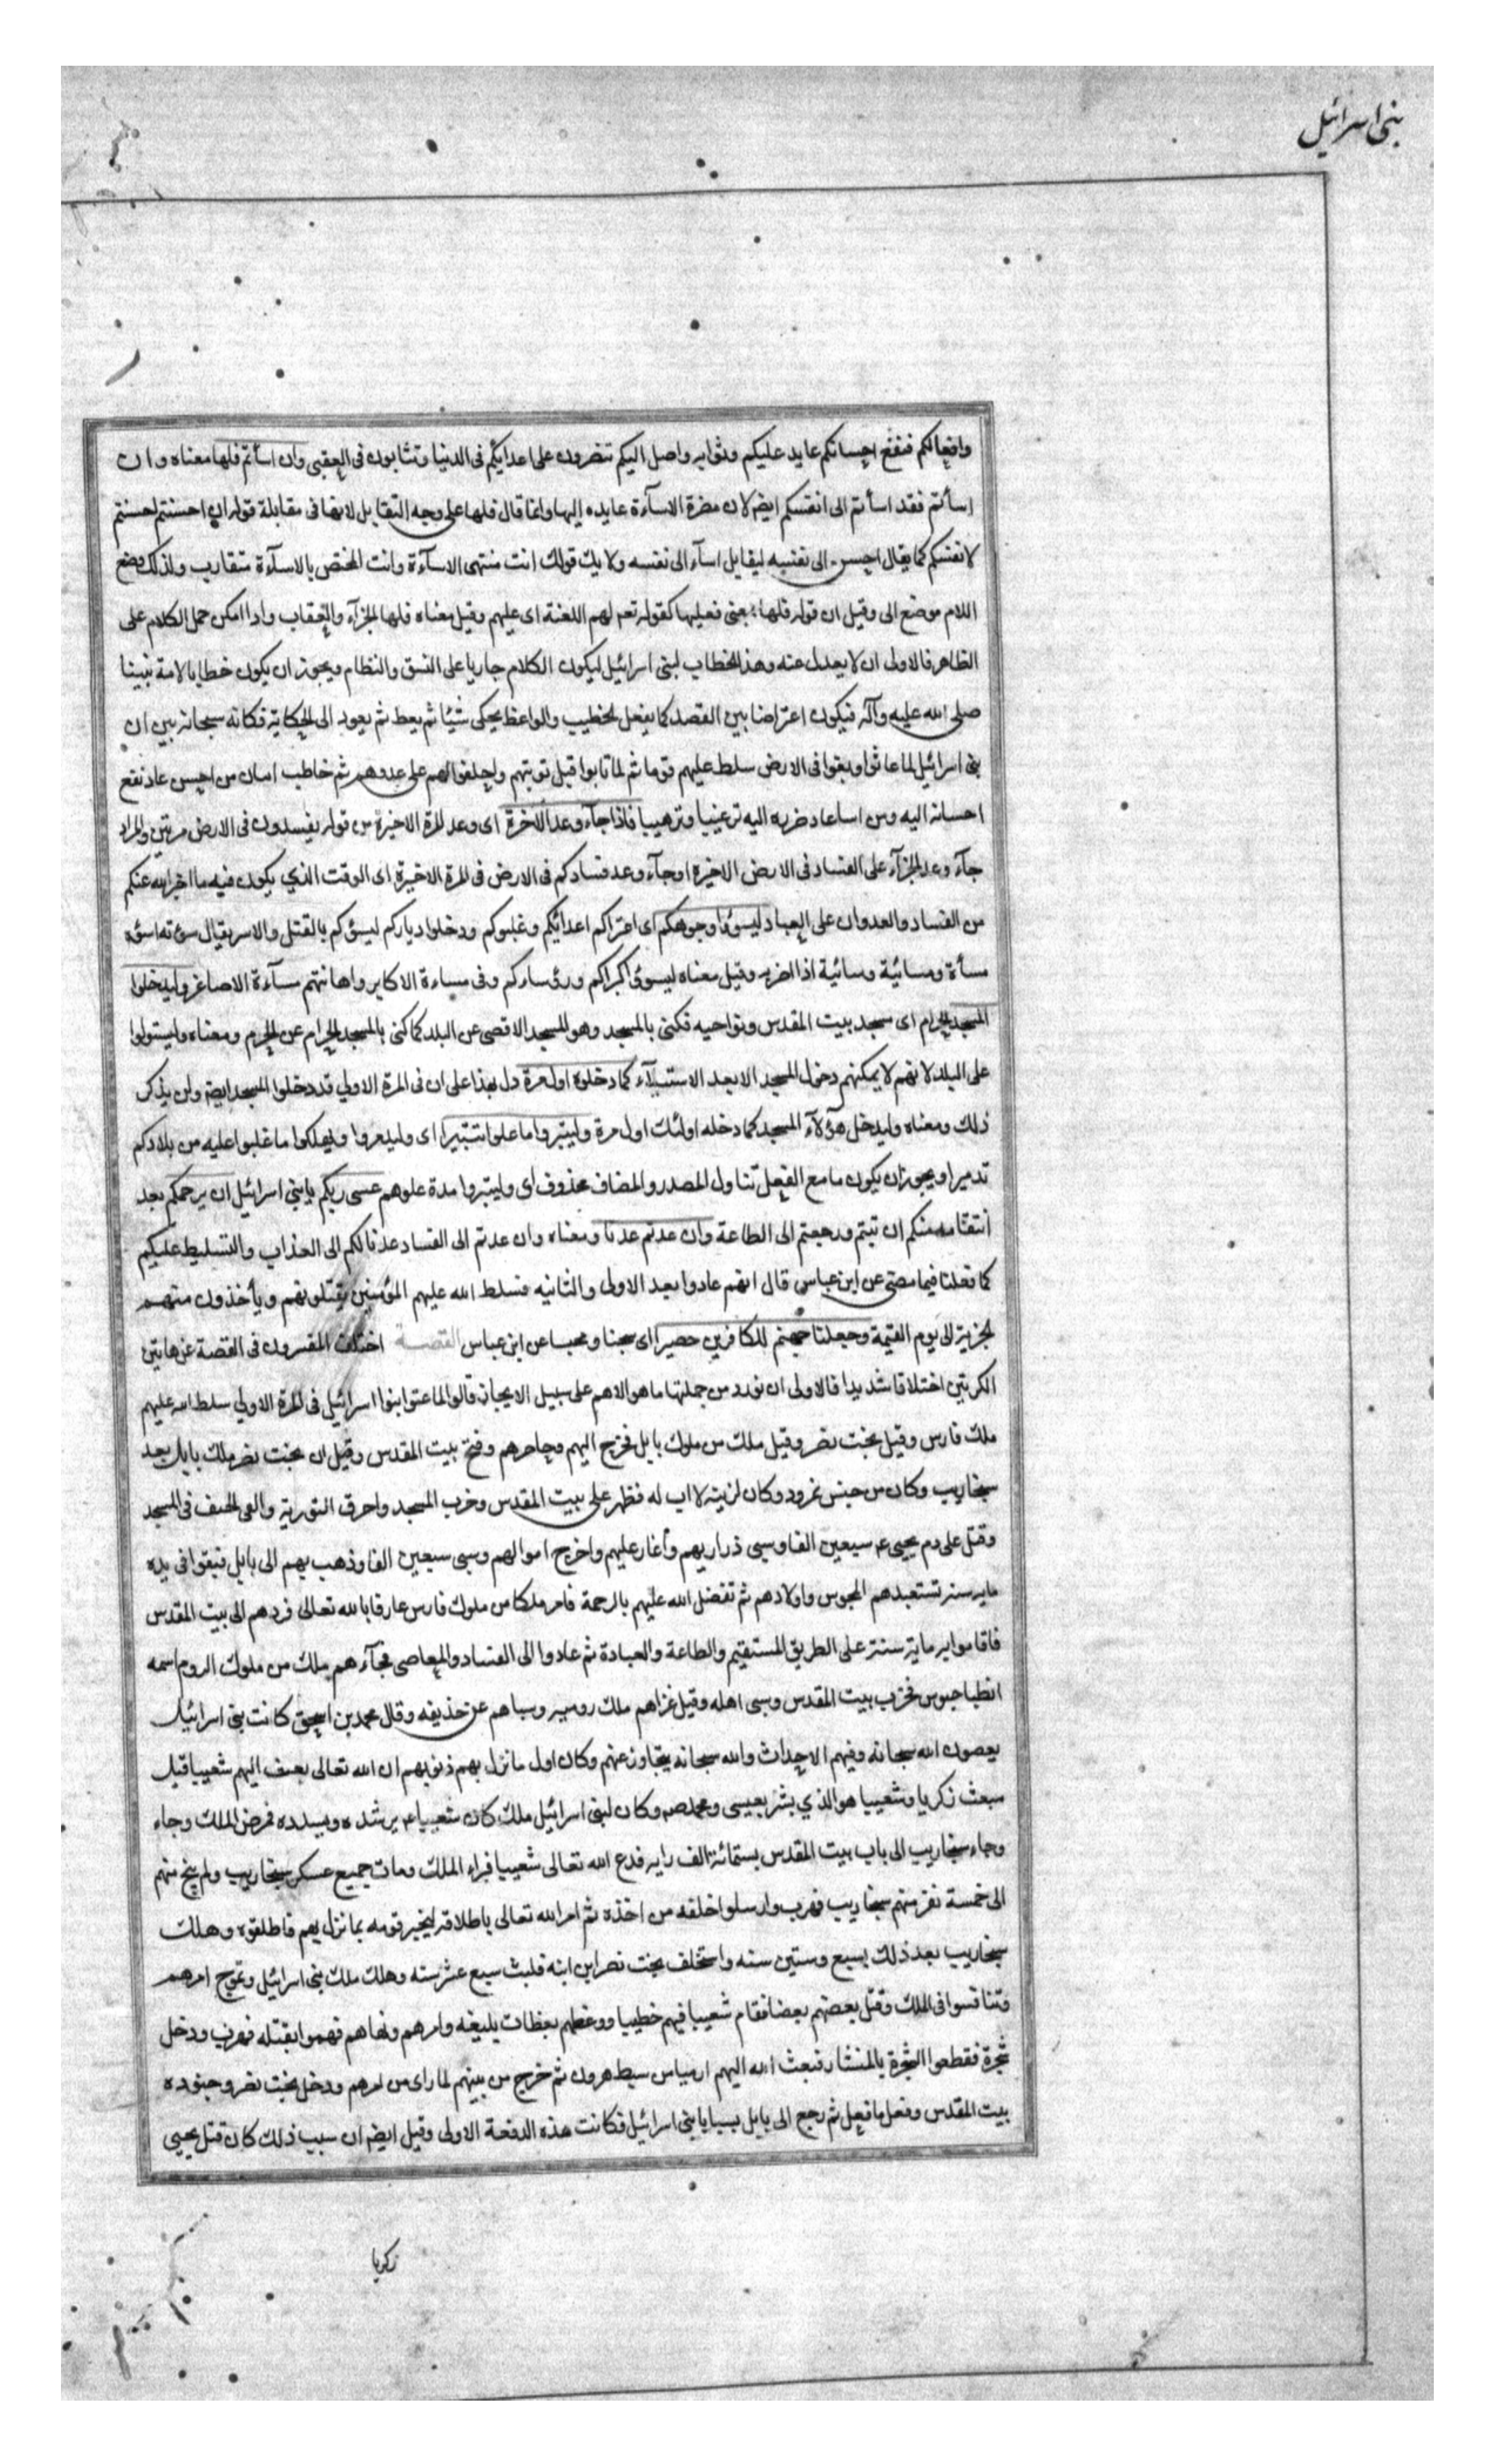 بنی اسرائیل
وافعالكم فنفع احسانكم عايد عليكم وثوابه واصل اليكم تنصرون على اعدائكم فى الدنيا وتثابون فى العقبى وان اسأتم فلها معناه وان
اسأتم فقد اسأتم الى انفسكم ايضا لان مضرة الاساءة عايده اليها وانما قال فلها على وجه التقابل لانها فى مقابلة قوله ان احسنتم احسنتم
لانفسكم كما يقال احسن الى نفسه ليقابل اساء الى نفسه ولايك قولك انت منتهى الاساءة وانت المختص بالاساءة متقارب ولذلك وضع
اللام موضع الى وقيل ان قوله فلها بمعنى فعليها كقوله تعـ لهم اللعنة اى عليهم وقيل معناه فلها الجزاء والعقاب واذا امكن حمل الكلام على
الظاهر فالاولى ان لا يعدل عنه وهذا الخطاب لبنى اسرائيل ليكون الكلام جاريا على النسق والنظام ويجوز ان يكون خطابا لامة نبينا
صلى الله عليه وآله فيكون اعتراضا بين القصد كما يفعل الخطيب والواعظ يحكى شيئا ثم يعظ ثم يعود الى الحكاية فكانه سبحانه بين ان
بنى اسرائيل لما عاثوا وبغوا فى الارض سلط عليهم قوما ثم لما تابوا قبل توبتهم واحلفوا لهم على عدوهم ثم خاطب امان من احسن عاد نفع
احسانه اليه ومن اسا عاد ضره اليه ترغيبا وترهيبا فاذا جاء وعد الآخرة اى وعد المرة الاخيرة من قوله يفسدون فى الارض مرتين والمراد
جاء وعد الجزاء على الفساد فى الارض الاخيرة او جاء وعد فسادكم فى الارض فى المرة الاخيرة اى الوقت الذي يكون فيه ما اخبر الله عنكم
من الفساد والعدوان على العباد ليسوؤا وجوهكم اى اغزاكم اعدائكم وغلبوكم ودخلوا دياركم ليسؤكم بالقتل والاسر يقال سوته اسؤه
مسأة ومسائية وسائية اذا احزنه وقيل معناه ليسوئى كبراكم ورؤساركم وفى مساءة الاكابر واهانتهم مساءة الاصاغر وليدخلوا
المسجد الحرام اى مسجد بيت المقدس ونواحيه فكنى بالمسجد وهو المسجد الاقصى عن البلد كما كنى بالمسجد الحرام عن الحرم ومعناه وليستولوا
على البلد لانهم لا يمكنهم دخول المسجد الا بعد الاستيلاء كما دخلوه اول مرة دل بهذا على ان فى المرة الاولي قد دخلوا المسجد ايضا ولن يذكر
ذلك ومعناه وليدخل هؤلاء المسجد كما دخله اولئك اول مرة وليتبروا ما علوا تتبيرا اى وليدمروا ويهلكوا ما غلبوا عليه من بلادكم
تدميرا ويجوز ان يكون ما مع الفعل تناول المصدر والمضاف محذوف اى وليتبروا مدة علوهم عسى ربكم يا بنى اسرائيل ان يرحمكم بعد
انتقامه منكم ان تبتم ورجعتم الى الطاعة وان عدتم عدنا ومعناه وان عدتم الى الفساد عدنا لكم الى العذاب والتسليط عليكم
كما فعلنا فيما مضى عن ابن عباس قال انهم عادوا بعد الاولى والثانيه فسلط الله عليهم المؤمنين يقتلونهم ويأخذون منهم
الجزية الى يوم القيمة وجعلنا جهنم للكافرين حصيرا اى سجنا ومحبسا عن ابن عباس القصة اختلف المفسرون فى القصة عن هاتين
الكرتين اختلافا شديدا فالاولى ان نورد من جملتها ما هو الاهم على سبيل الايجاز قالوا لما عتوا بنوا اسرائيل فى المرة الاولي سلط الله عليهم
ملك فارس وقيل بخت نصر وقيل ملك من ملوك بابل فخرج اليهم وحاصرهم وفتح بيت المقدس وقيل ان بخت نصر ملك بابل بعد
سنحاريب وكان من جيش نمرود وكان لزنية لا اب له فظهر على بيت المقدس وخرب المسجد واحرق التورية والقى الجيف فى المسجد
وقتل على دم يحيى ع سبعين الفا وسبى ذراريهم وأغار عليهم واخرج اموالهم وسبى سبعين الفا وذهب بهم الى بابل فبقوا فى يده
مايه سنه تستعبدهم المجوس واولادهم ثم تفضل الله عليهم بالرحمة فامر ملكا من ملوك فارس عارفا بالله تعالى فردهم الى بيت المقدس
فاقاموا به ماية سنة على الطريق المستقيم والطاعة والعبادة ثم عادوا الى الفساد والمعاصى فجاءهم ملك من ملوك الروم اسمه
انطياحوس فخرب بيت المقدس وسبى اهله وقيل غزاهم ملك روميه وسباهم عن حذيفه وقال محمد بن اسحق كانت بنى اسرائيل
يعصون الله سبحانه وفيهم الاحداث والله سبحانه يتجاوز عنهم وكان اول ما نزل بهم ذنوبهم ان الله تعالى بعث اليهم شعييا قبل
مبعث زكريا وشعييا هو الذي بشر بعيسى وبمحمد ص وكان لبنى اسرائيل ملك كان شعييا ع يرشده ويسدده فمرض الملك وجاء
وجاء سنحاريب الى باب بيت المقدس بستمائة الف رايه فدع الله تعالى شعييا فبراء الملك ومات جميع عسكر سنحاريب ولم ينج منهم
الى خمسة نفر منهم سنحاريب فهرب وارسلوا خلفه من اخذه ثم امر الله تعالى باطلاقه ليخبر قومه بما نزل بهم فاطلقوه وهلك
سنحاريب بعد ذلك بسبع وستين سنه واستخلف بخت نصر ابن ابنه فلبث سبع عشر سنه وهلك ملك بنى اسرائيل ومرج امرهم
وتنافسوا فى الملك وقتل بعضهم بعضا فقام شعييا فيهم خطيبا ووعظهم بعظات بليغه وامرهم ونهاهم فهموا بقتله فهرب ودخل
شجرة فقطعوا الشجرة بالمنشار فبعث الله اليهم ارمياس سبط هرون ثم خرج من بينهم لما راى من امرهم ودخل بخت نصر وجنوده
بيت المقدس وفعل ما فعل ثم رجع الى بابل بسبايا بنى اسرائيل فكانت هذه الدفعة الاولى وقيل ايضا ان سبب ذلك كان قتل يحيى
زكريا